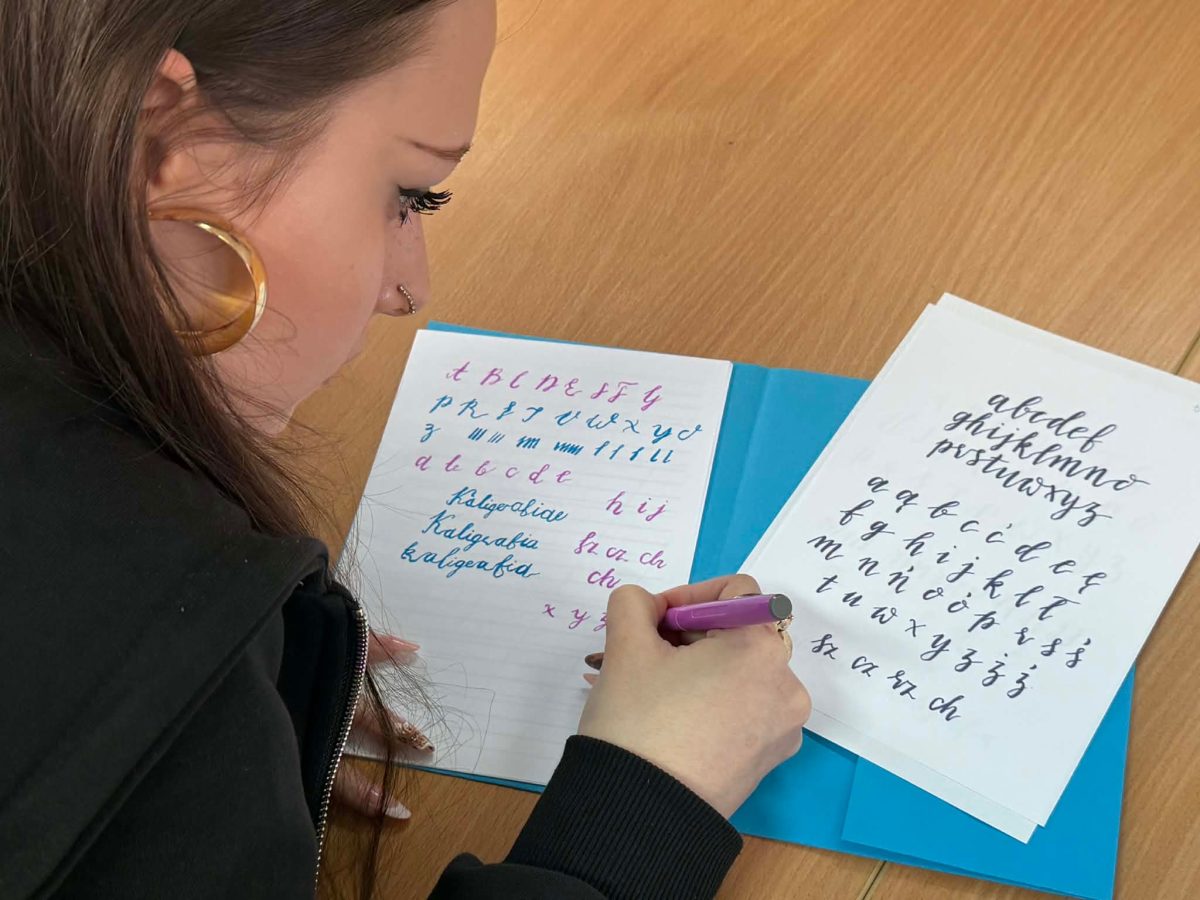 A B C D E S T G
P R S T V W X Y O
z m m m mm f f f l l
a b b c d e
h i j
Kaligrafiae
Kaligrafia
kaligrafia
sz cz ch
ch
x y z
abcdef
ghijklmno
prstuwxyz
a ą b c ć d e ę
f g h i j k l ł
m n ń o ó p r s ś
t u w x y z ż ź
sz cz rz ch